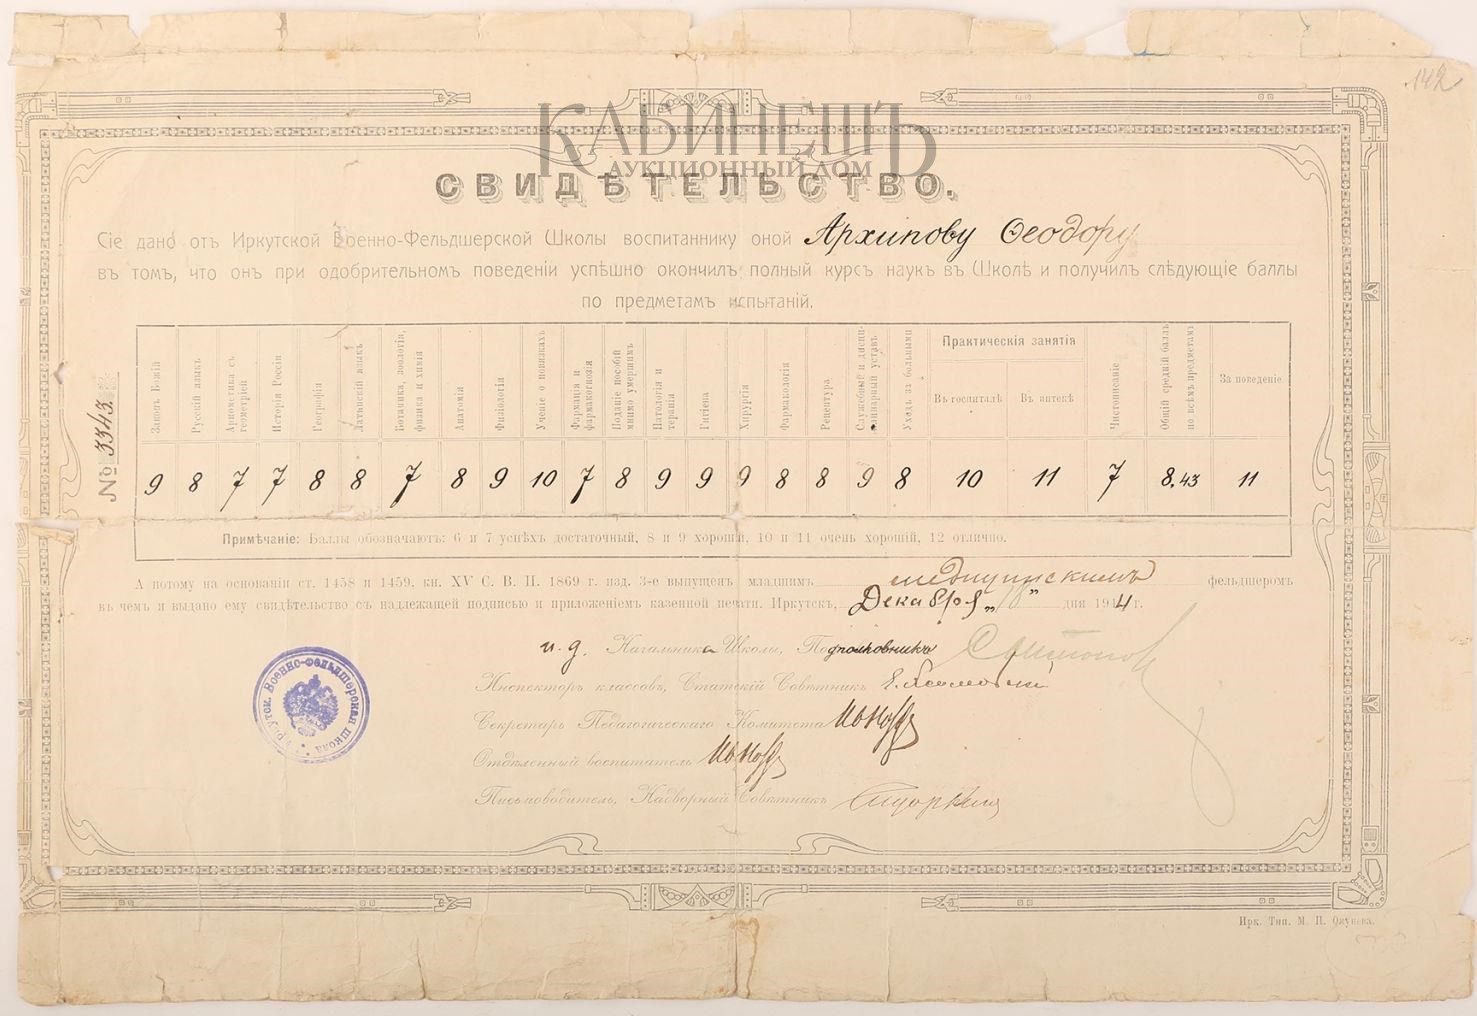 142
КАБИНЕТЪ
АУКЦИОННЫЙ ДОМ
СВИДѢТЕЛЬСТВО.
Сіе дано отъ Иркутской Военно-Фельдшерской Школы воспитаннику оной Архипову Ѳеодору
въ томъ, что онъ при одобрительномъ поведеніи успѣшно окончилъ полный курсъ наукъ въ Школѣ и получилъ слѣдующіе баллы
по предметамъ испытаній.
№ 3343.
Законъ Божій
Русскій языкъ
Ариѳметика съ геометріей
Исторія Россіи
Географія
Латинскій языкъ
Ботаника, зоологія, физика и химія
Анатомія
Физіологія
Ученіе о повязкахъ
Фармація и фармакогнозія
Поданіе пособій мнимо умершимъ
Патологія и терапія
Гигіена
Хирургія
Фармакологія
Рецептура
Служебный и дисциплинарный уставъ
Уходъ за больными
Практическія занятія
Въ госпиталѣ
Въ аптекѣ
Чистописаніе
Общій средній баллъ по всѣмъ предметамъ
За поведеніе
9 8 7 7 8 8 7 8 9 10 7 8 9 9 9 8 8 9 8 10 11 7 8,43 11
Примѣчаніе: Баллы обозначаютъ: 6 и 7 успѣхъ достаточный, 8 и 9 хорошій, 10 и 11 очень хорошій, 12 отлично.
А потому на основаніи ст. 1458 и 1459, кн. XV С. В. П. 1869 г. изд. 3-е выпущенъ младшимъ медицинскимъ фельдшеромъ
въ чемъ и выдано ему свидѣтельство съ надлежащей подписью и приложеніемъ казенной печати. Иркутскъ, Декабря „18" дня 1914 г.
и. д. Начальника Школы, Подполковникъ
Инспекторъ классовъ, Статскій Совѣтникъ
Секретарь Педагогическаго Комитета
Отдѣленный воспитатель
Письмоводитель, Надворный Совѣтникъ
Иркутск. Военно-Фельдшерская Школа
Ирк. Тип. М. П. Окунева.